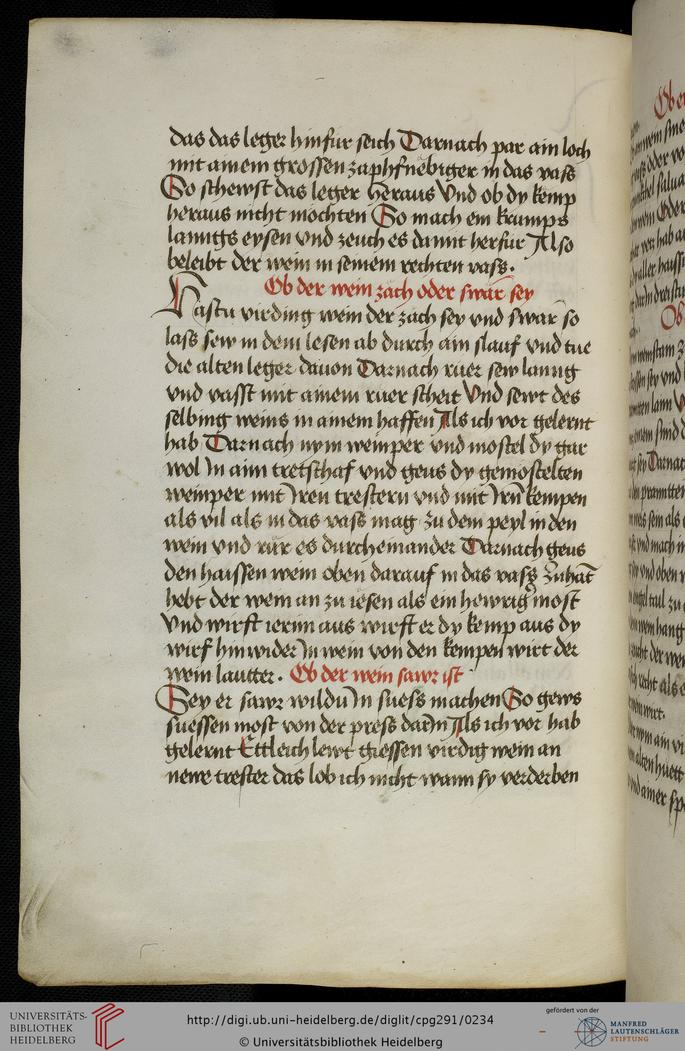 das das leger hinfur seich Darnach par ain loch
mit ainem grossen zaphfnebiger in das vass
So schewst das leger heraus Vnd ob dy kemp
heraus nicht mochten So mach ein krumps
lanngs eysen vnd zeuch es damit herfur Also
beleibt der wein in seinem rechten vass.
Ob der wein zäch oder swär sey
Hastu virding wein der zäch sey vnd swär so
lass sew in dem lesen ab durch ain slauf vnd tue
die alten leger dauon Darnach ruer sew lanng
vnd vasst mit ainem ruer scheit Vnd sewt des
selbing weins in ainem haffen Als ich vor gelernt
hab Darnach nym weinper vnd mostel dy gar
wol In aim tretschaf vnd geus dy gemostelten
weinper mit Iren trestern vnd mit Irn kempen
als vil als in das vass mag zu dem peyl in den
wein vnd rür es durcheinander Darnach geus
den haissen wein oben darauf in das vass Zuhāt
hebt der wein an zu iesen als ein hewrigʼ most
Vnd wirft ierim aus wirft er dy kemp aus dy
wirf hinwider In wein von den kempen wirt der
wein lautter. Ob der wein sawr ist
Sey er sawr wildu In suess machen So gews
suessen most von der press darIn Als ich vor hab
gelernt Ettleich lewt giessen virdig wein an
newe trester das lob ich nicht wann sy verderben
UNIVERSITÄTS-
BIBLIOTHEK
HEIDELBERG
http://digi.ub.uni-heidelberg.de/diglit/cpg291/0234
© Universitätsbibliothek Heidelberg
gefördert von der
MANFRED
LAUTENSCHLÄGER
STIFTUNG